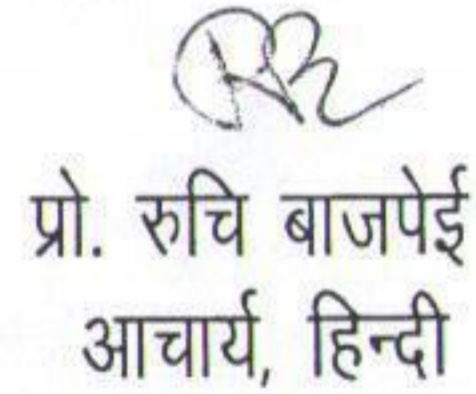 प्रो. रुचि बाजपेई
आचार्य, हिन्दी